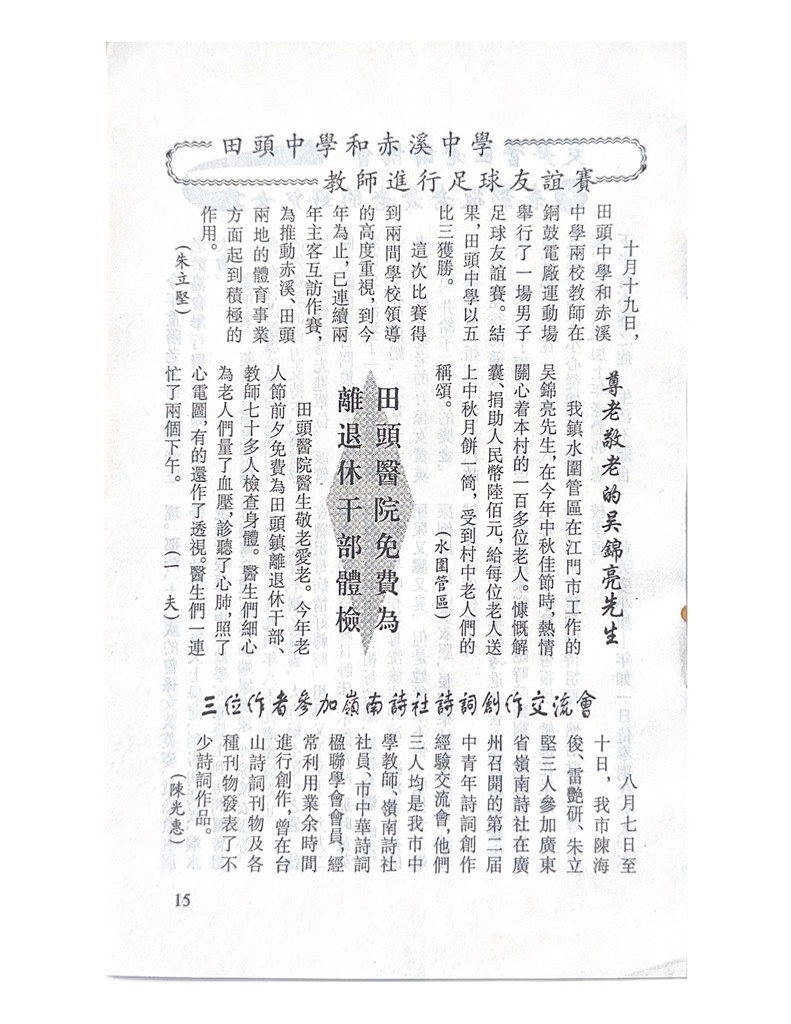 田頭中學和赤溪中學
教師進行足球友誼賽
十月十九日，
田頭中學和赤溪
中學兩校教師在
銅鼓電廠運動場
舉行了一場男子
足球友誼賽。結
果，田頭中學以五
比三獲勝。
這次比賽得
到兩間學校領導
的高度重視，到今
年為止，已連續兩
年主客互訪作賽，
為推動赤溪、田頭
兩地的體育事業
方面起到積極的
作用。
(朱立堅)
尊老敬老的吳錦亮先生
我鎮水圍管區在江門市工作的
吳錦亮先生，在今年中秋佳節時，熱情
關心着本村的一百多位老人。慷慨解
囊、捐助人民幣陸佰元，給每位老人送
上中秋月餅一筒，受到村中老人們的
稱頌。
(水圍管區)
田頭醫院免費為
離退休干部體檢
田頭醫院醫生敬老愛老。今年老
人節前夕免費為田頭鎮離退休干部、
教師七十多人檢查身體。醫生們細心
為老人們量了血壓，診聽了心肺，照了
心電圖，有的還作了透視。醫生們一連
忙了兩個下午。
(一夫)
三位作者參加嶺南詩社詩詞創作交流會
八月七日至
十日，我市陳海
俊、雷艷研、朱立
堅三人參加廣東
省嶺南詩社在廣
州召開的第二屆
中青年詩詞創作
經驗交流會，他們
三人均是我市中
學教師、嶺南詩社
社員、市中華詩詞
楹聯學會會員，經
常利用業余時間
進行創作，曾在台
山詩詞刊物及各
種刊物發表了不
少詩詞作品。
(陳光惠)
15